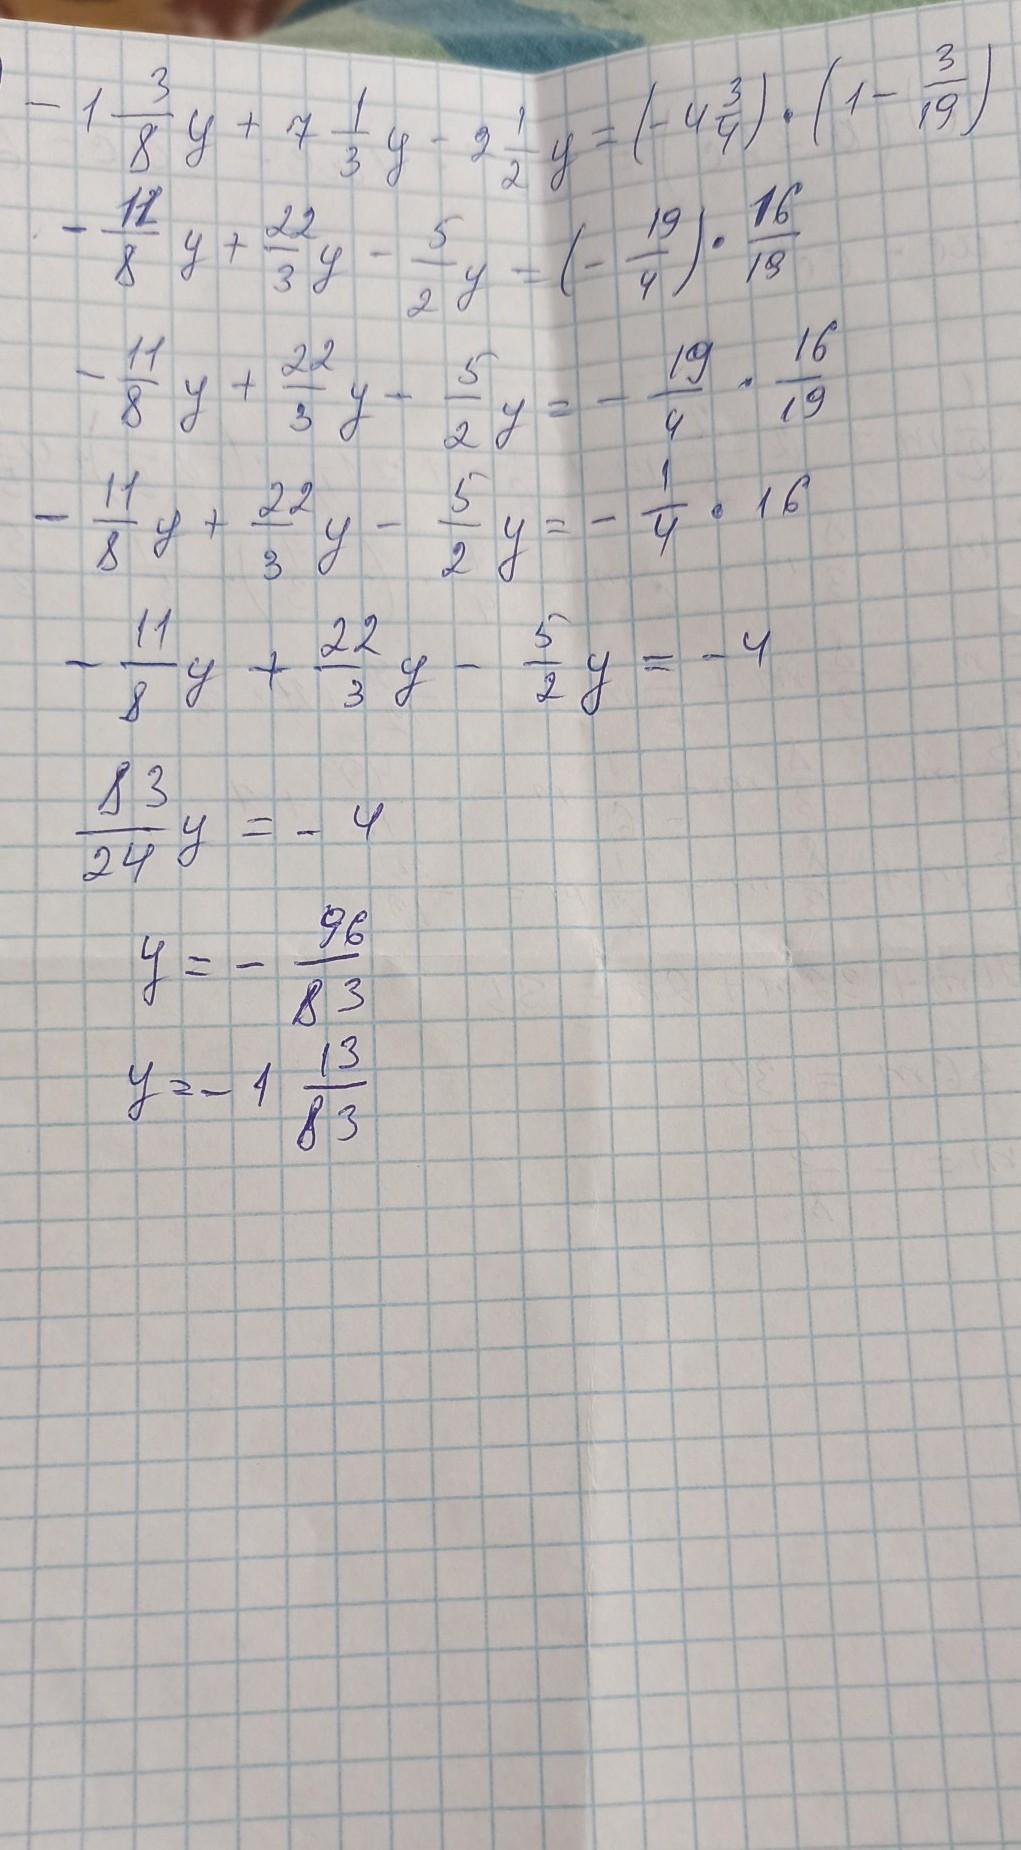 - 1 3/8 y + 7 1/3 y - 2 1/2 y = (- 4 3/4) · (1 - 3/19)
- 11/8 y + 22/3 y - 5/2 y = (- 19/4) · 16/19
- 11/8 y + 22/3 y - 5/2 y = - 19/4 · 16/19
- 11/8 y + 22/3 y - 5/2 y = - 1/4 · 16
- 11/8 y + 22/3 y - 5/2 y = - 4
83/24 y = - 4
y = - 96/83
y = - 1 13/83